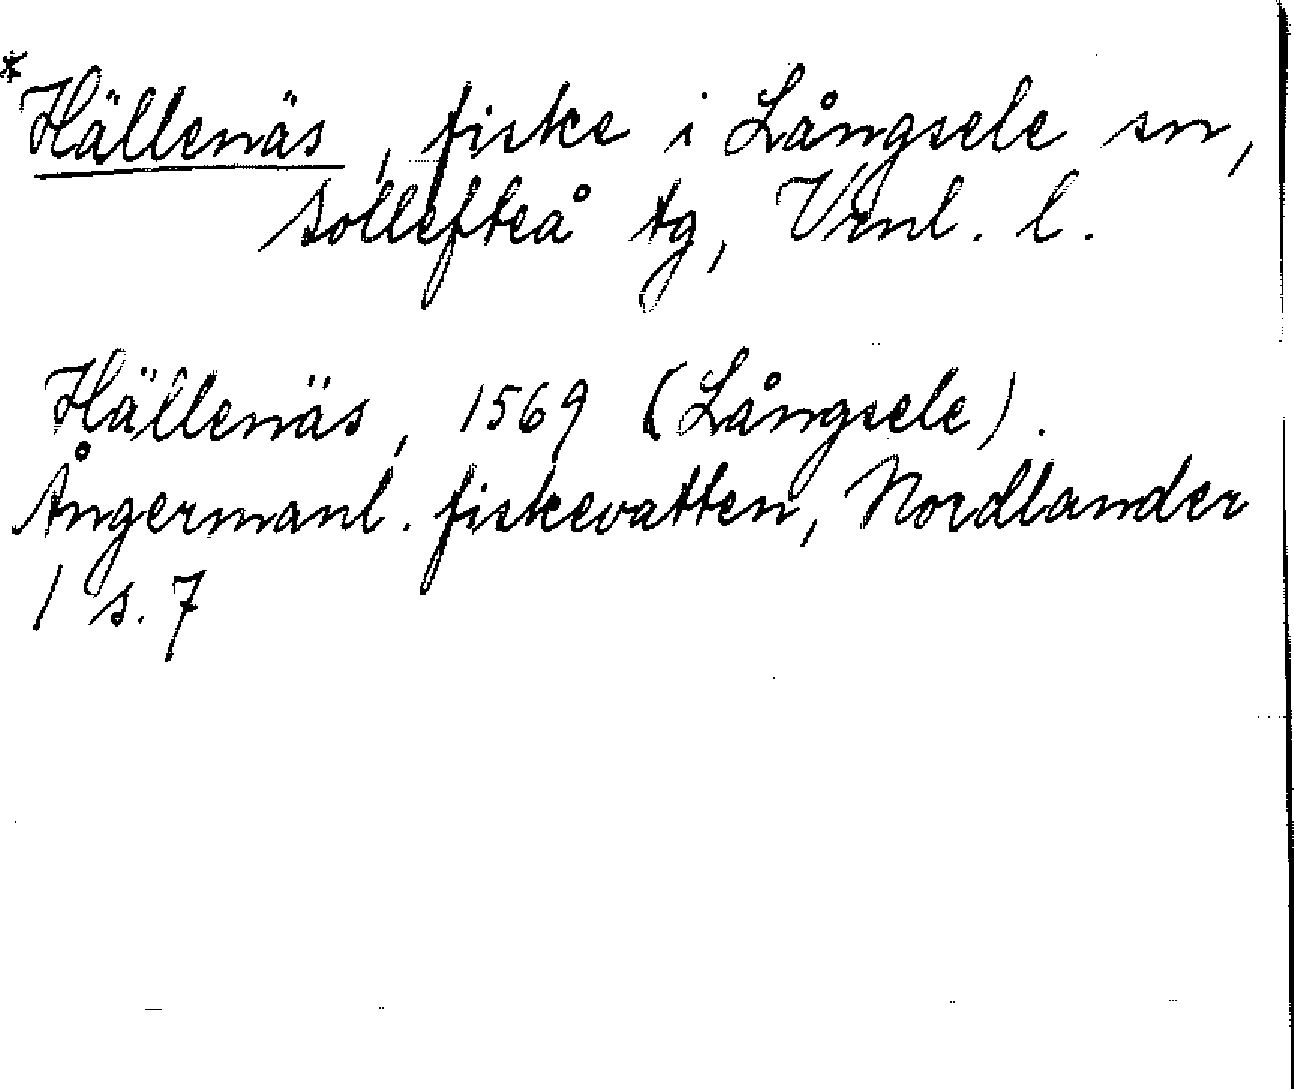 *Hällenäs, fiske i Långsele sn,
Sollefteå tg, Vrnl. l.
Hällenäs, 1569 (Långsele).
Ångermanl. fiskevatten, Nordlander
1 s. 7